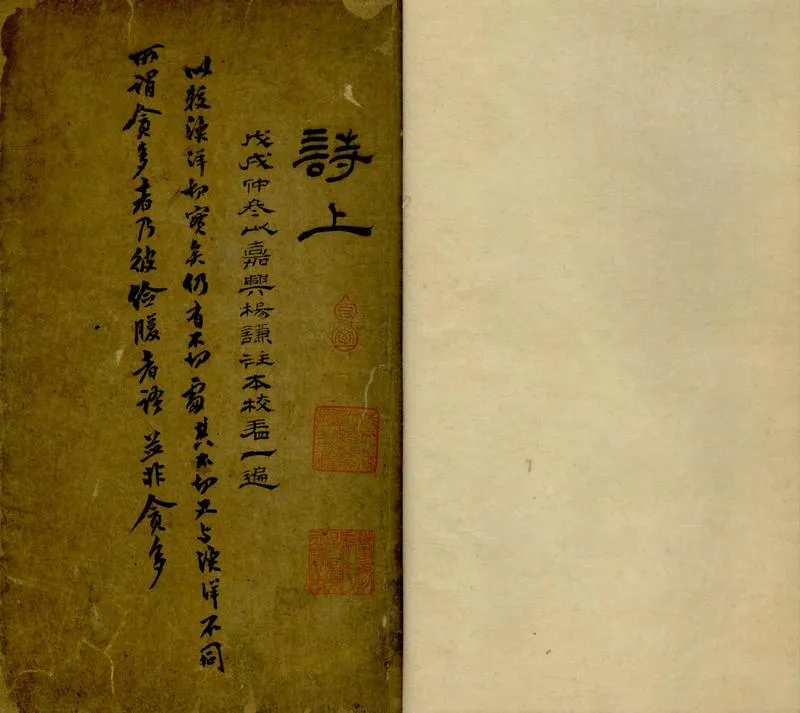 詩上
戊戌仲冬以嘉興楊謙注本校看一遍
以較漁洋切實矣仍有不切處其不切又与漁洋不同
所謂貪多者乃彼儉腹者語並非貪多